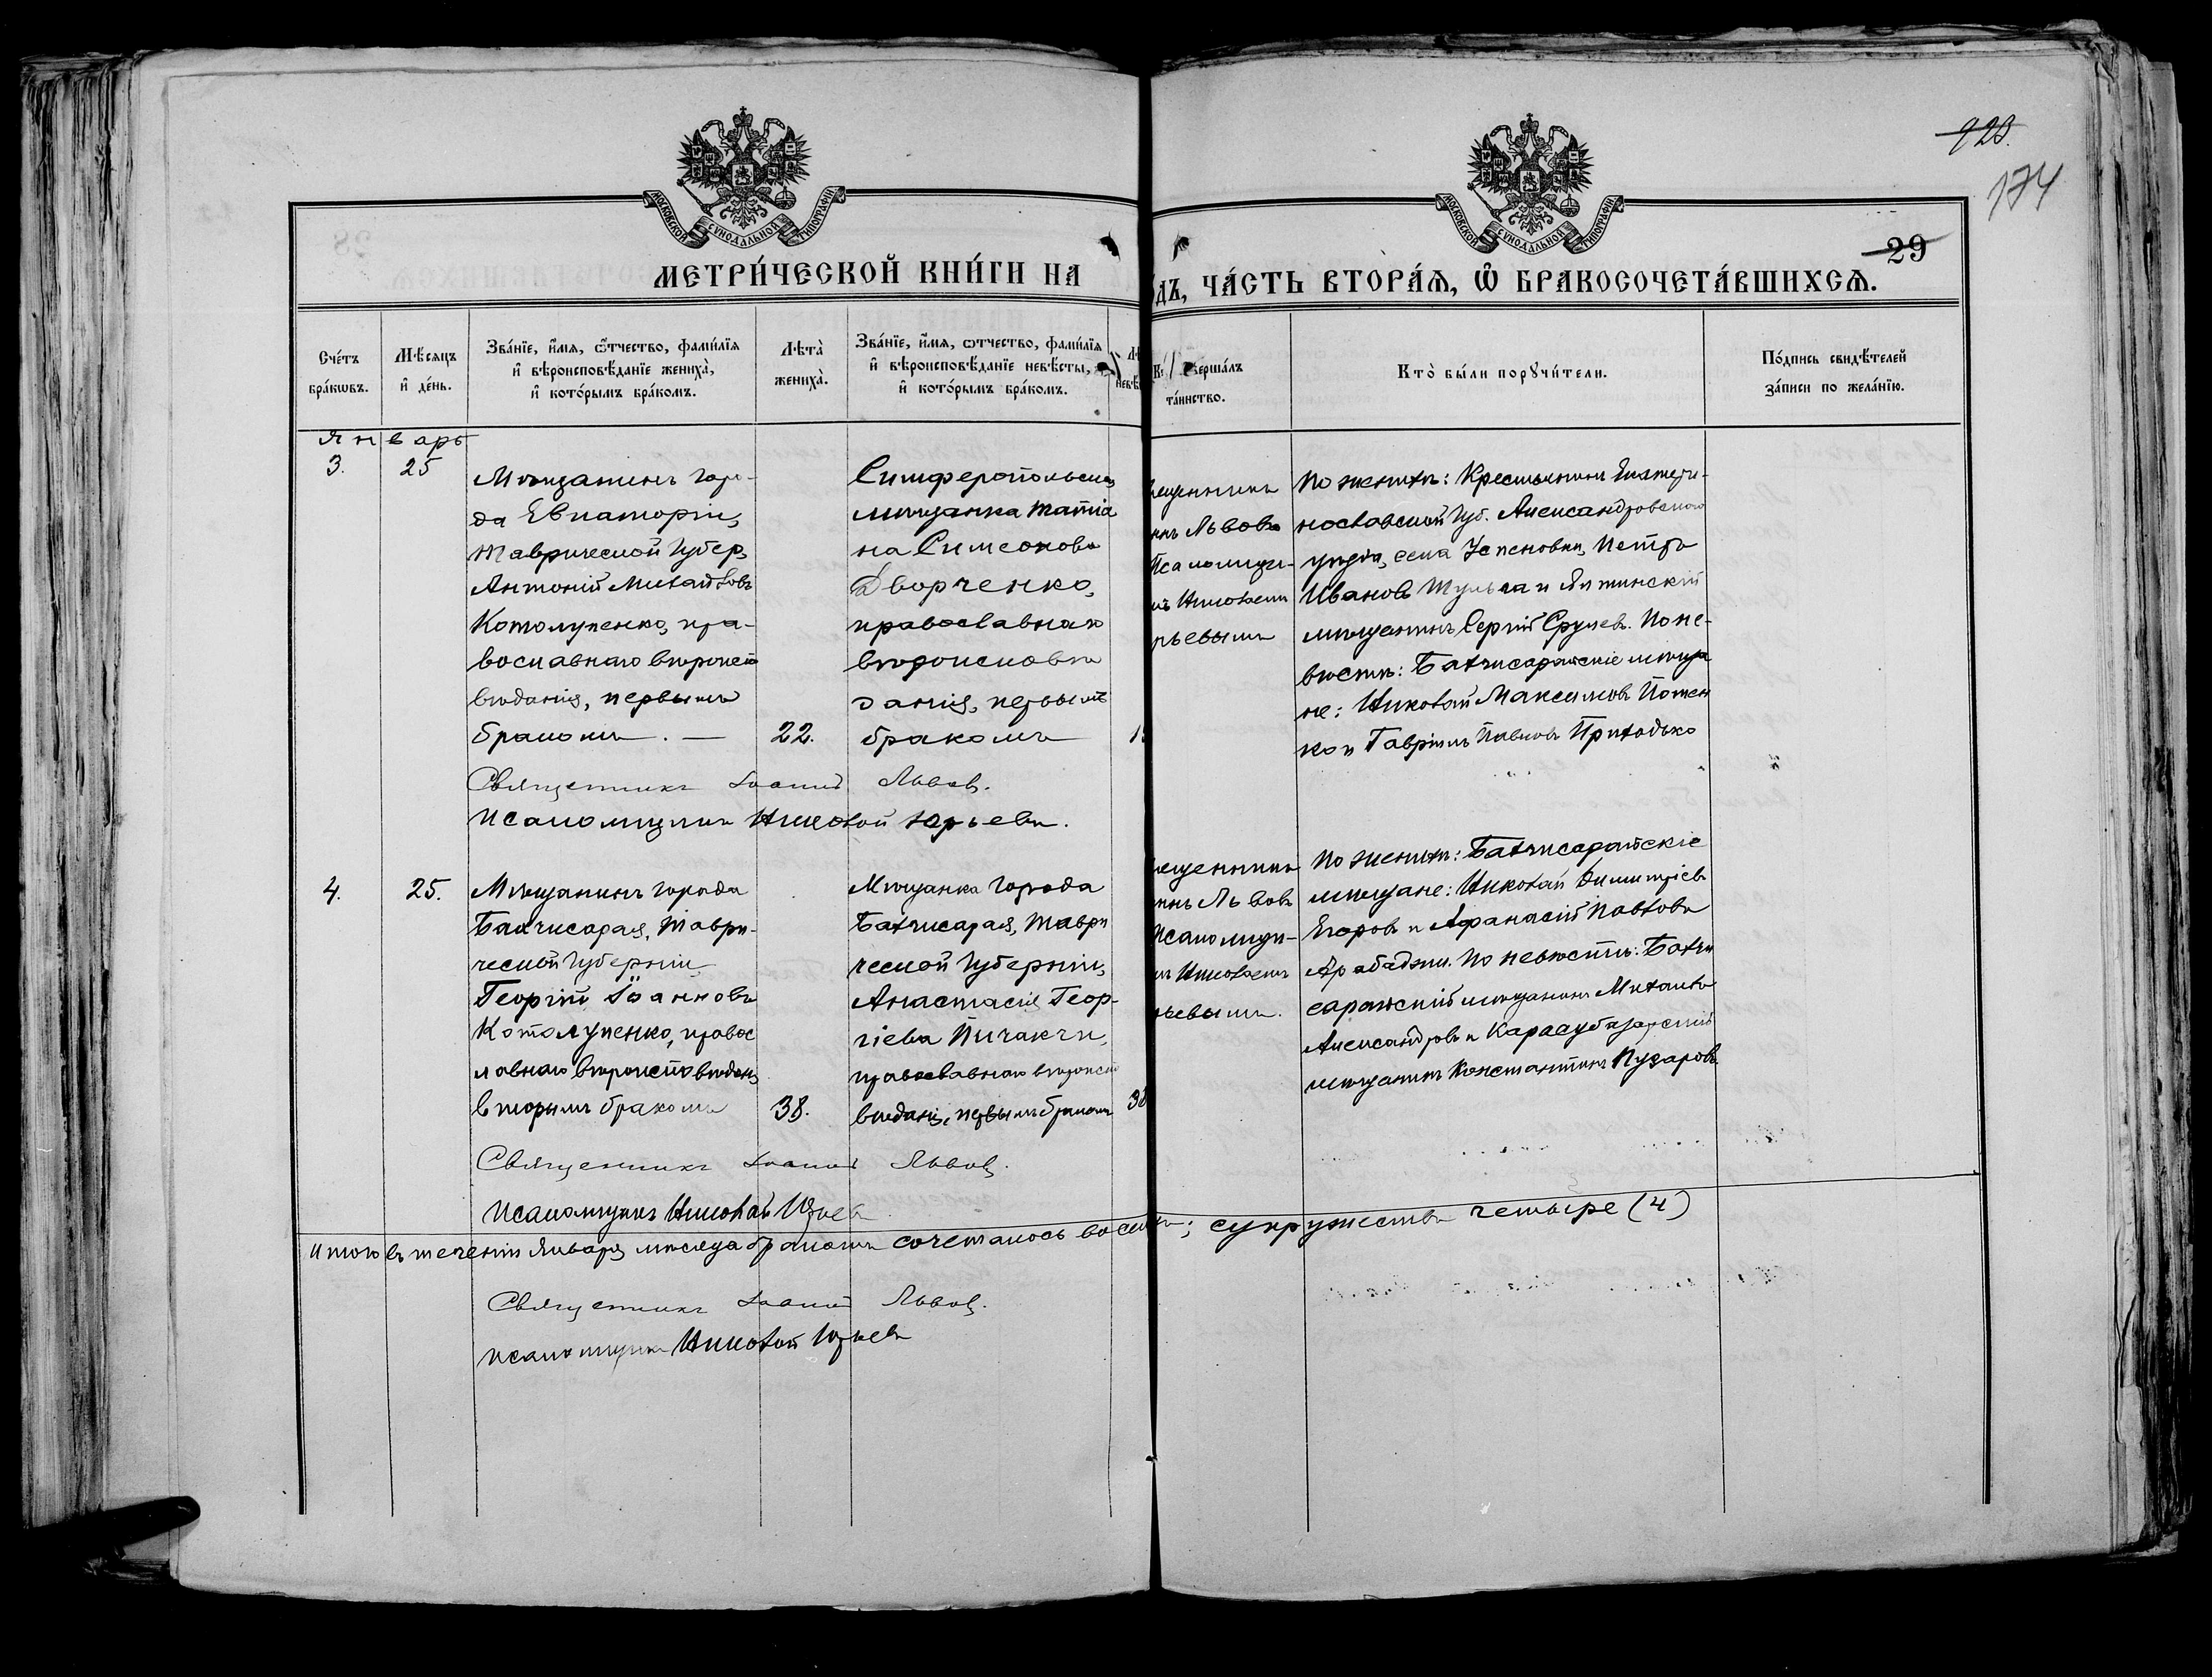 923.
174
29
МОСКОВСКОЙ СѴНОДАЛЬНОЙ ТИПОГРАФІИ
МОСКОВСКОЙ СѴНОДАЛЬНОЙ ТИПОГРАФІИ
МЕТРИ́ЧЕСКОЙ КНИ́ГИ НА
ДЪ, ЧА́СТЬ ВТОРА́Я, Ѡ҆ БРАКОСОЧЕТА́ВШИХСЯ.
Сче́тъ бра́кѡвъ.
Мѣ́сяцъ и҆ де́нь.
Зва́нїе, и҆́мя, ѻ҆́тчество, фами́лїя
и҆ вѣроисповѣ́данїе жениха̀,
и҆ кото́рымъ бра́комъ.
Лѣта̀ жениха̀.
Зва́нїе, и҆́мя, ѻ҆тчество, фами́лїя
и҆ вѣроисповѣ́данїе невѣ́сты,
и҆ кото́рымъ бра́комъ.
ершалъ
та́инство.
Кто̀ бы́ли порꙋчи́тели.
По́дпись свидѣ́телей
за́писи по жела́нїю.
Январь
3.
25
Мѣщанинъ горо-
да Евпаторіи,
Таврической Губер,
Антоній Михайловъ
Котолупенко, пра-
вославнаго вѣроиспо
вѣданія, первымъ
бракомъ. —
22.
Симферопольская
мѣщанка Татіа
на Симеонова
Дворченко,
православнаго
вѣроисповѣ
данія, первымъ
бракомъ
1
щенникъ
нъ Львовъ
Псаломщи-
мъ Николаемъ
рьевымъ
По женихѣ: Крестьянинъ Екатери-
нославской Губ. Александровскаго
уѣзда, села Успеновки, Петръ
Ивановъ и Ялтинскій
мѣщанинъ Сергій По не-
вѣстѣ: Бахчисарайскіе мѣща
не: Николай Максимовъ Потен
ко и Гавріилъ Павловъ Приходько
Священникъ Іоаннъ Львовъ.
Псаломщикъ Николай Юрьевъ.
4.
25.
Мѣщанинъ города
Бахчисарая, Таври-
ческой Губерніи,
Георгій Іоанновъ
Котолупенко, правос
лавнаго вѣроисповѣданія
вторымъ бракомъ
38.
Мѣщанка города
Бахчисарая, Таври
ческой Губерніи,
Анастасія Геор-
гіева Пичакчи,
православнаго вѣроиспо
вѣданія, первымъ бракомъ
38
щенникъ
ннъ Львовъ
Псаломщи-
мъ Николаемъ
рьевымъ.
По женихѣ: Бахчисарайскіе
мѣщане: Николай Димитріевъ
Егоровъ и Афанасій Павловъ
Арабаджи. По невѣстѣ: Бахчи
сарайскій мѣщанинъ Михаилъ
Александровъ и Карасубазарскій
мѣщанинъ Константинъ Пузаровъ
Священникъ Іоаннъ Львовъ.
Псаломщикъ Николай Юрьевъ
Итого въ теченіи Января мѣсяца бракомъ сочеталось восемь; супружествъ четыре (4)
Священникъ Іоаннъ Львовъ.
Псаломщикъ Николай Юрьевъ